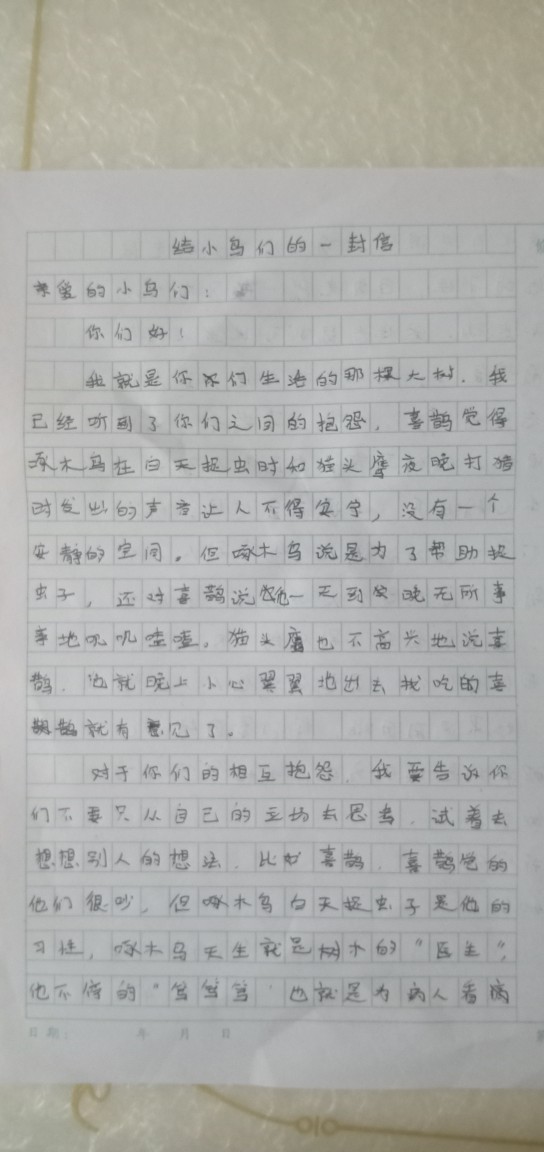 给小鸟们的一封信
亲爱的小鸟们：
你们好！
我就是你们生活的那棵大树．我
已经听到了你们之间的抱怨，喜鹊觉得
啄木鸟在白天捉虫时和猫头鹰夜晚打猎
时发出的声音让人不得安宁，没有一个
安静的空间。但啄木鸟说是为了帮助捉
虫子，还对喜鹊说他一天到晚无所事
事地叽叽喳喳。猫头鹰也不高兴地说喜
鹊．他就晚上小心翼翼地出去找吃的喜
鹊就有意见了。
对于你们的相互抱怨．我要告诉你
们不要只从自己的立场去思考．试着去
想想别人的想法．比如喜鹊．喜鹊觉的
他们很吵，但啄木鸟白天捉虫子是他的
习性，啄木鸟天生就是树木的“医生”，
他不停的“笃笃笃”也就是为病人看病
日期：　年　月　日